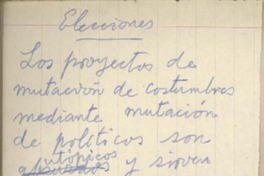 Elecciones
Los proyectos de
mutación de costumbres
mediante mutación
de políticos son
utópicos
y sirven